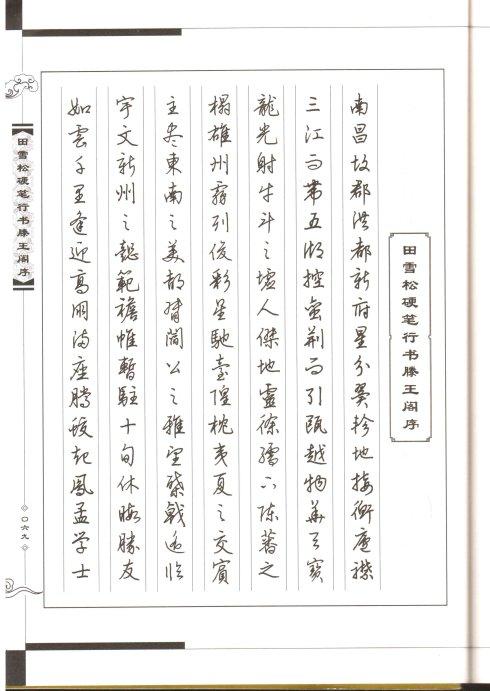 田雪松硬笔行书滕王阁序
南昌故郡洪都新府星分翼軫地接衡廬襟
三江而帶五湖控蛮荆而引甌越物華天寶
龍光射牛斗之墟人傑地靈徐孺下陳蕃之
榻雄州霧列俊彩星馳臺隍枕夷夏之交賓
主尽東南之美都督閻公之雅望棨戟遥临
宇文新州之懿範襜帷暫駐十旬休暇勝友
如雲千里逢迎高朋满座騰蛟起鳳孟学士
田雪松硬笔行书滕王阁序
〇六九